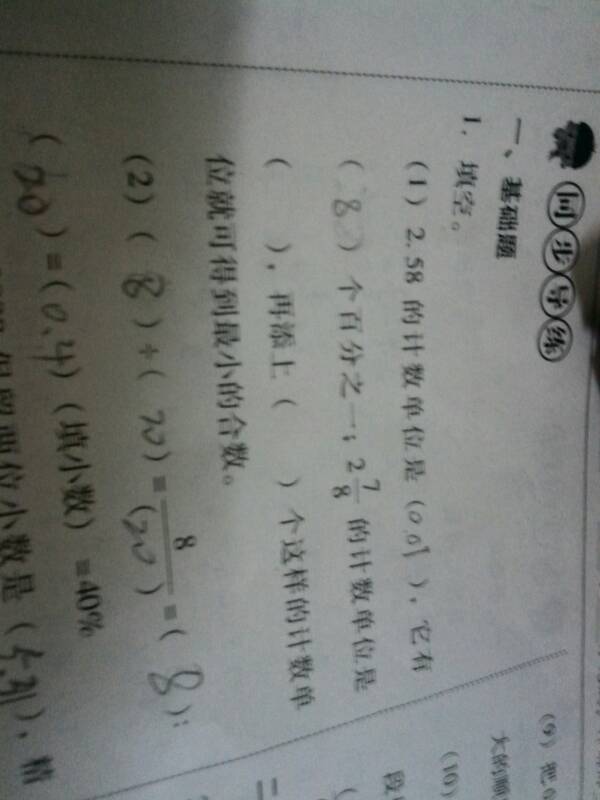 同步导练
一、基础题
1. 填空。
(1) 2.58 的计数单位是 (0.01), 它有
( ) 个百分之一; 2 7/8 的计数单位是
( ), 再添上 ( ) 个这样的计数单
位就可得到最小的合数。
(2) ( 8 ) ÷ ( 20 ) = 8/(20) = ( 8 ):
( 20 ) = (0.4) (填小数) = 40%
两位小数是
(9) 把
大的顺
(10)
段
二